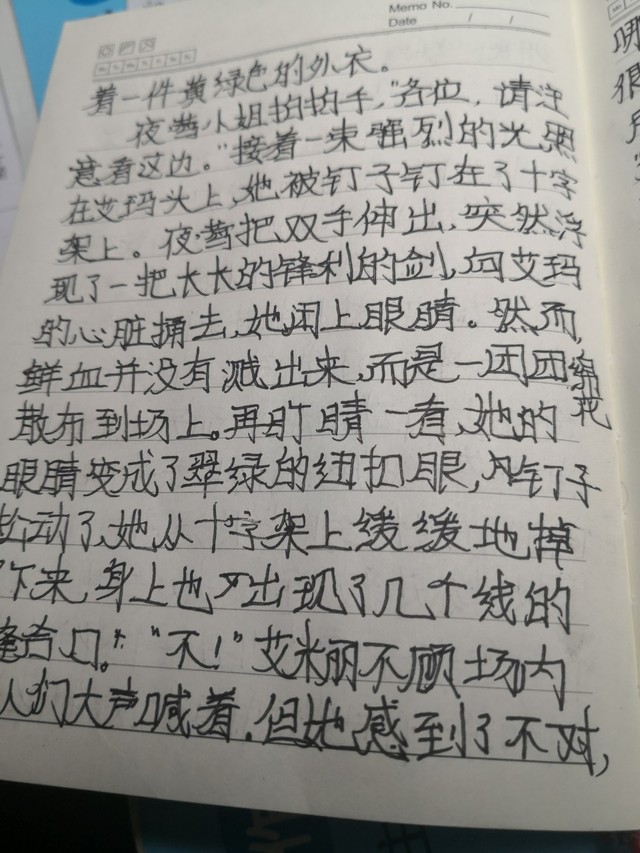 Memo No.
Date / /
着一件黄绿色的外衣。
夜莺小姐拍拍手,"各位,请注
意看这边。"接着一束强烈的光照
在艾玛头上,她被钉子钉在了十字
架上。夜莺把双手伸出,突然浮
现了一把长长的锋利的剑,向艾玛
的心脏捅去,她闭上眼睛。然而,
鲜血并没有溅出来,而是一团团棉花
散布到场上。再盯睛一看,她的
眼睛变成了翠绿的纽扣眼,
钉子
松动了,她从十字架上缓缓地掉
下来,身上也
出现了几个线的
缝合口。"不!"艾米丽不顾场内
人们大声喊着,但她感到了不对,
哪
很